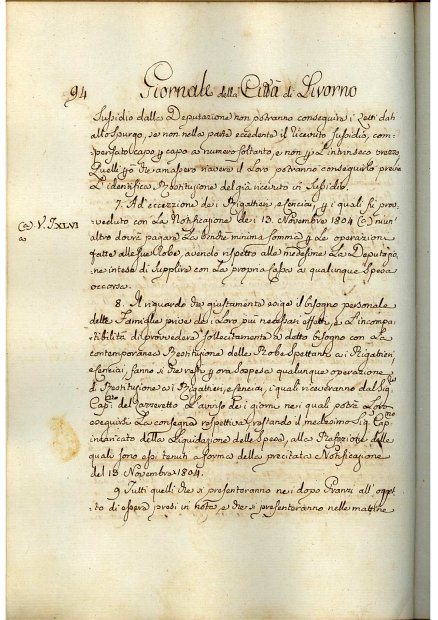 94 Giornale della Città di Livorno
Sussidio dalla Deputazione non potranno conseguire i Letti dati
allo Spurgo, se non nella parte eccedente il ricevuto sussidio, com-
pensato capo p capo a numero soltanto, e non p L'intrinseco prezzo
Quelli p che amassero riavere il Loro potranno conseguirlo previa
L'identifica Restituzione del già ricevuto in Sussidio.
7. Ad eccezzione dei Rigattieri, e Cenciai, p i quali fù prov-
veduto con La Notificazione de i 13. Novembre 1804 (a) niun'
(a) V. T. XLVI
altro dovrà pagare La benchè minima somma p Le operazioni
fatte alle sue Robe, avendo rispetto alle medesime La Deputazio-
ne inteso di supplire con La propria Cassa a qualunque spesa
occorsa.
8. Al riguardo che giustamente esige il bisogno personale
delle Famiglie prive dei Loro più necessari effetti, e L'incompa-
tibilità di provvedere sollecitamente a detto bisogno con La
contemporanea Restituzione delle Robe Spettanti ai Rigattieri,
e Cenciai, fanno sì che resti p ora sospesa qualunque operazione
di Restituzione ai Rigattieri, e Cenciai, i quali riceveranno dal Sig.
Cap. del Lazzeretto L'avviso dei giorni nei quali potrà Loro
eseguirsi La consegna rispettiva, restando il medesimo Sig. Cap.
incaricato della Liquidazione delle Spese, alla Refazione delle
quali sono essi tenuti a forma della precitata Notificazione
del 13 Novembre 1804.
9. Tutti quelli che si presenteranno nei dopo Pranzi all'ogget-
to di essere presi in nota e che si presenteranno nelle mattine